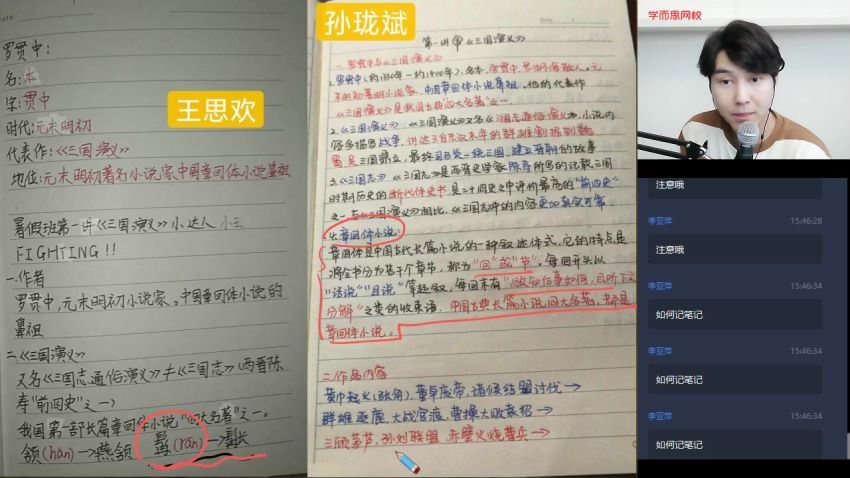 罗贯中:
名:本
字:贯中
时代:元末明初
代表作:《三国演义》
地位:元末明初著名小说家,中国章回体小说鼻祖
王思欢
暑假班第一讲《三国演义》小达人
FIGHTING!!
一.作者
罗贯中,元末明初小说家。中国章回体小说的
鼻祖
二.《三国演义》
又名《三国志通俗演义》≠《三国志》(西晋陈
寿"前四史"之一)
我国第一部长篇章回体小说"四大名著"之一。
颔(hàn)→燕颔 髯(rán)→髯长
孙珑斌
第一讲 《三国演义》
一.罗贯中与《三国演义》
1.罗贯中(约1330年—约1400年),名本,字贯中,号湖海散人。元
末明初著名小说家,中国章回体小说鼻祖,他的代表作
《三国演义》是我国古典四大名著之一。
2.《三国演义》 《三国演义》又名《三国志通俗演义》,小说内
容多描写战争,讲述了自东汉末年的群雄割据到魏
蜀,吴三国鼎立,最终司马炎一统三国,建立晋朝的故事
3.《三国志》 《三国志》是西晋史学家陈寿所写的记载三国
时期历史的断代体史书是二十四史之中评价最高的"前四史"
之一与《三国演义》相比,《三国志》中的内容更加真实可靠.
4.章回体小说:
章回体是中国古代长篇小说的一种叙述体式,它的特点是
将全书分为若干个章节,称为"回"或"节"。每回开头以
"话说""且说"等起叙,每回末有"欲知后事如何,且听下文
分解"之类的收束语.中国古典长篇小说四大名著,都是
章回体小说。
二.作品内容
黄巾起义(张角),董卓废帝,诸侯结盟讨伐→
群雄逐鹿,大战官渡,曹操大败袁绍→
三顾茅庐,孙刘联盟,赤壁火烧曹兵→
学而思网校
注意哦
李亚萍 15:46:28
注意哦
李亚萍 15:46:34
如何记笔记
李亚萍 15:46:34
如何记笔记
李亚萍 15:46:34
如何记笔记